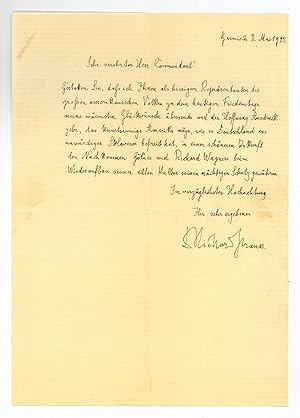 Garmisch 8. Mai 1945.
Sehr verehrter Herr Commandant!
Gestatten Sie, daß ich Ihnen als hiesigen Repräsentanten des
großen amerikanischen Volkes zu dem heutigen Friedenstage
meine wärmsten Glückwünsche übersende und der Hoffnung Ausdruck
gebe, das kunstsinnige Amerika möge, wie es Deutschland aus
unwürdiger Sklaverei befreit hat, in einer schöneren Zukunft
den Nachkommen Goethes und Richard Wagners beim
Wiederaufbau seiner alten Kultur seinen mächtigen Schutz gewähren.
In vorzüglichster Hochachtung
Ihr sehr ergebener
Richard Strauss.